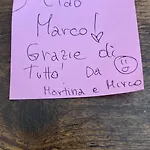 Ciao
Marco!
Grazie di
Tutto! Da
Martina e Mirco